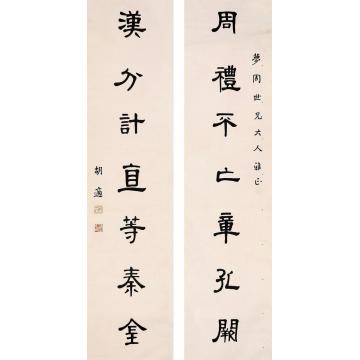 夢周世兄大人雅正
周禮不亡章孔闕
漢分計直等秦金
胡適